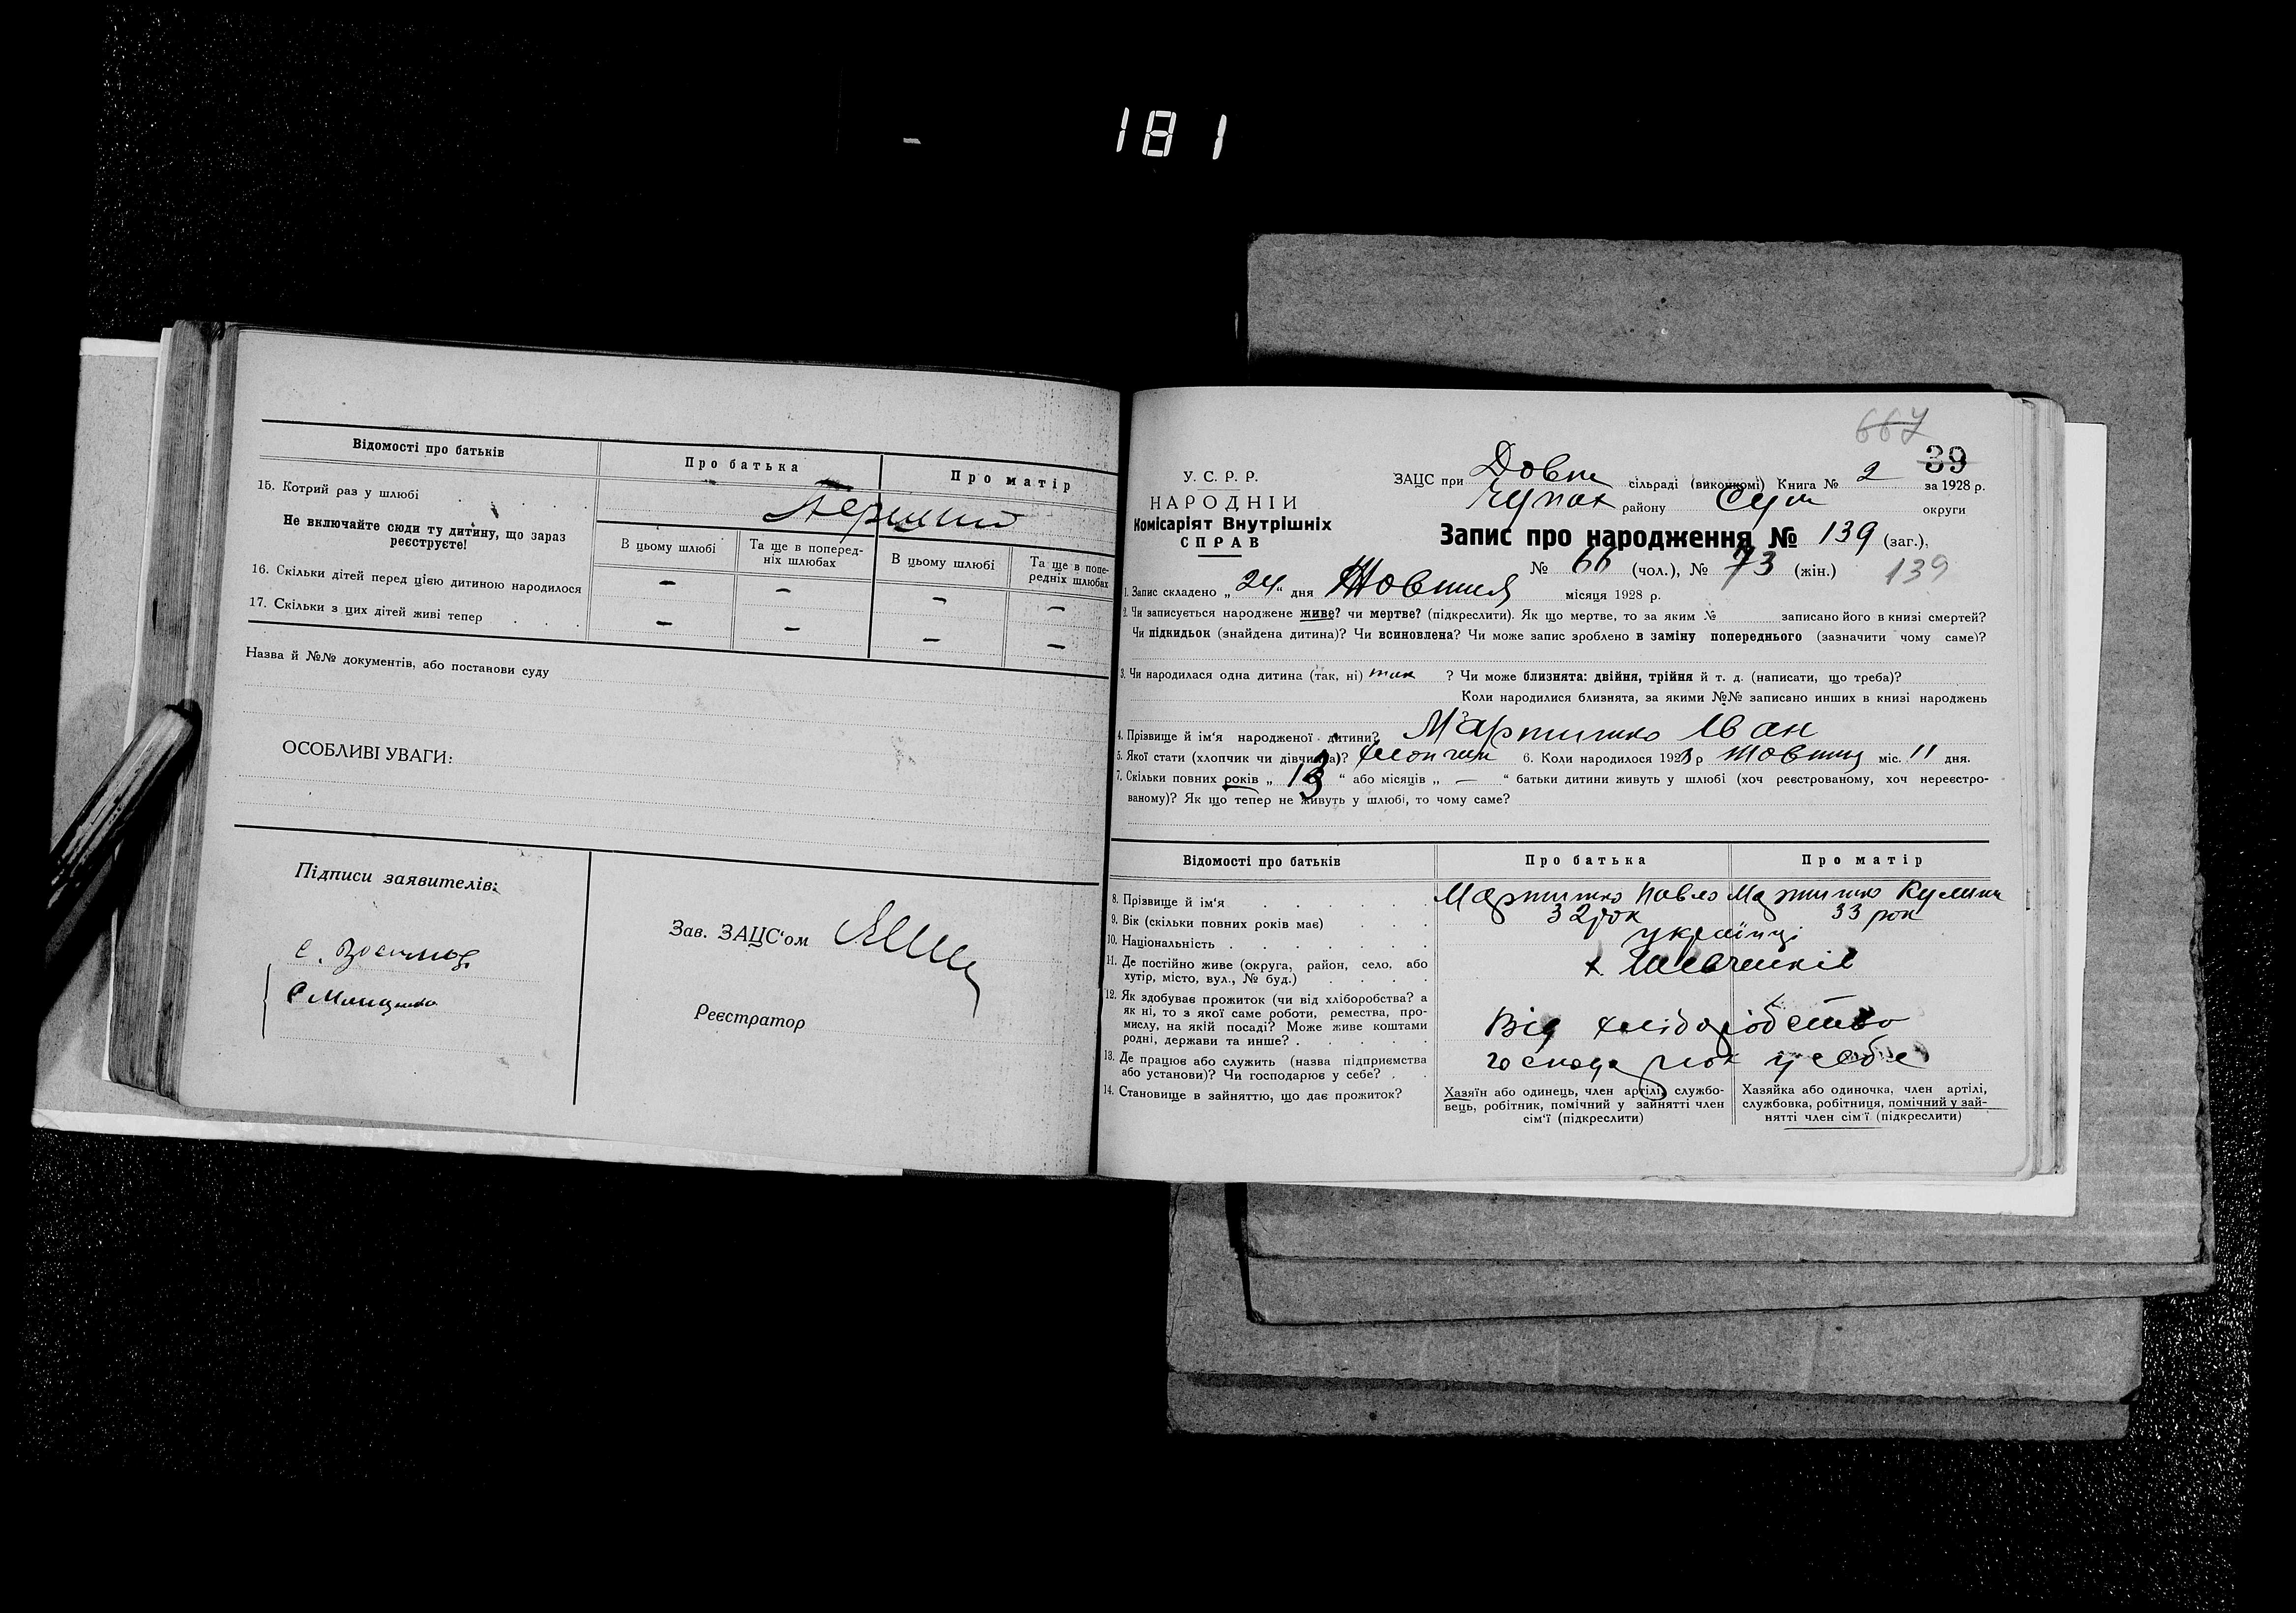 181
Відомості про батьків
Про батька
Про матір
15. Котрий раз у шлюбі
Перший
Не включайте сюди ту дитину, що зараз
реєструєте!
В цьому шлюбі
Та ще в поперед-
ніх шлюбах
В цьому шлюбі
Та ще в попе-
редніх шлюбах
16. Скільки дітей перед цією дитиною народилося
— — — —
17. Скільки з цих дітей живі тепер
— — — —
Назва й №№ документів, або постанови суду
ОСОБЛИВІ УВАГИ:
Підписи заявителів:
Зав. ЗАЦС'ом
Реєстратор
667
39
У. С. Р. Р.
НАРОДНІЙ
Комісаріят Внутрішніх
СПРАВ
ЗАЦС при Довж сільраді (виконкомі) Книга № 2 за 1928 р.
Чупах району Сум округи
Запис про народження № 139 (заг.),
№ 66 (чол.), № 73 (жін.) 139
1. Запис складено „24“ дня Жовтня місяця 1928 р.
2. Чи записується народжене живе? чи мертве? (підкреслити). Як що мертве, то за яким № записано його в книзі смертей?
Чи підкидьок (знайдена дитина)? Чи всиновлена? Чи може запис зроблено в заміну попереднього (зазначити чому саме)?
3. Чи народилася одна дитина (так, ні) так ? Чи може близнята: двійня, трійня й т. д. (написати, що треба)?
Коли народилися близнята, за якими №№ записано инших в книзі народжень
4. Прізвище й ім'я народженої дитини? Мартишко Іван
5. Якої стати (хлопчик чи дівчинка)? хлопчик 6. Коли народилося 1928 р Жовтня міс. 11 дня.
7. Скільки повних років „ 13 “ або місяців „ — “ батьки дитини живуть у шлюбі (хоч реєстрованому, хоч нереєстро-
ваному)? Як що тепер не живуть у шлюбі, то чому саме?
Відомості про батьків
Про батька
Про матір
8. Прізвище й ім'я
Мартишко Павло
Мартишко Кулина
9. Вік (скільки повних років має)
32 рок
33 рок
10. Національність
українці
11. Де постійно живе (округа, район, село, або
хутір, місто, вул., № буд.)
х Шевченків
12. Як здобуває прожиток (чи від хліборобства? а
як ні, то з якої саме роботи, ремества, про-
мислу, на якій посаді? Може живе коштами
родні, держави та инше?
Від хліборобство
13. Де працює або служить (назва підприємства
або установи)? Чи господарює у себе?
у себе
14. Становище в зайняттю, що дає прожиток?
Хазяїн або одинець, член артілі, службо-
вець, робітник, помічний у зайнятті член
сім'ї (підкреслити)
Хазяйка або одиночка, член артілі,
службовка, робітниця, помічний у зай-
нятті член сім'ї (підкреслити)